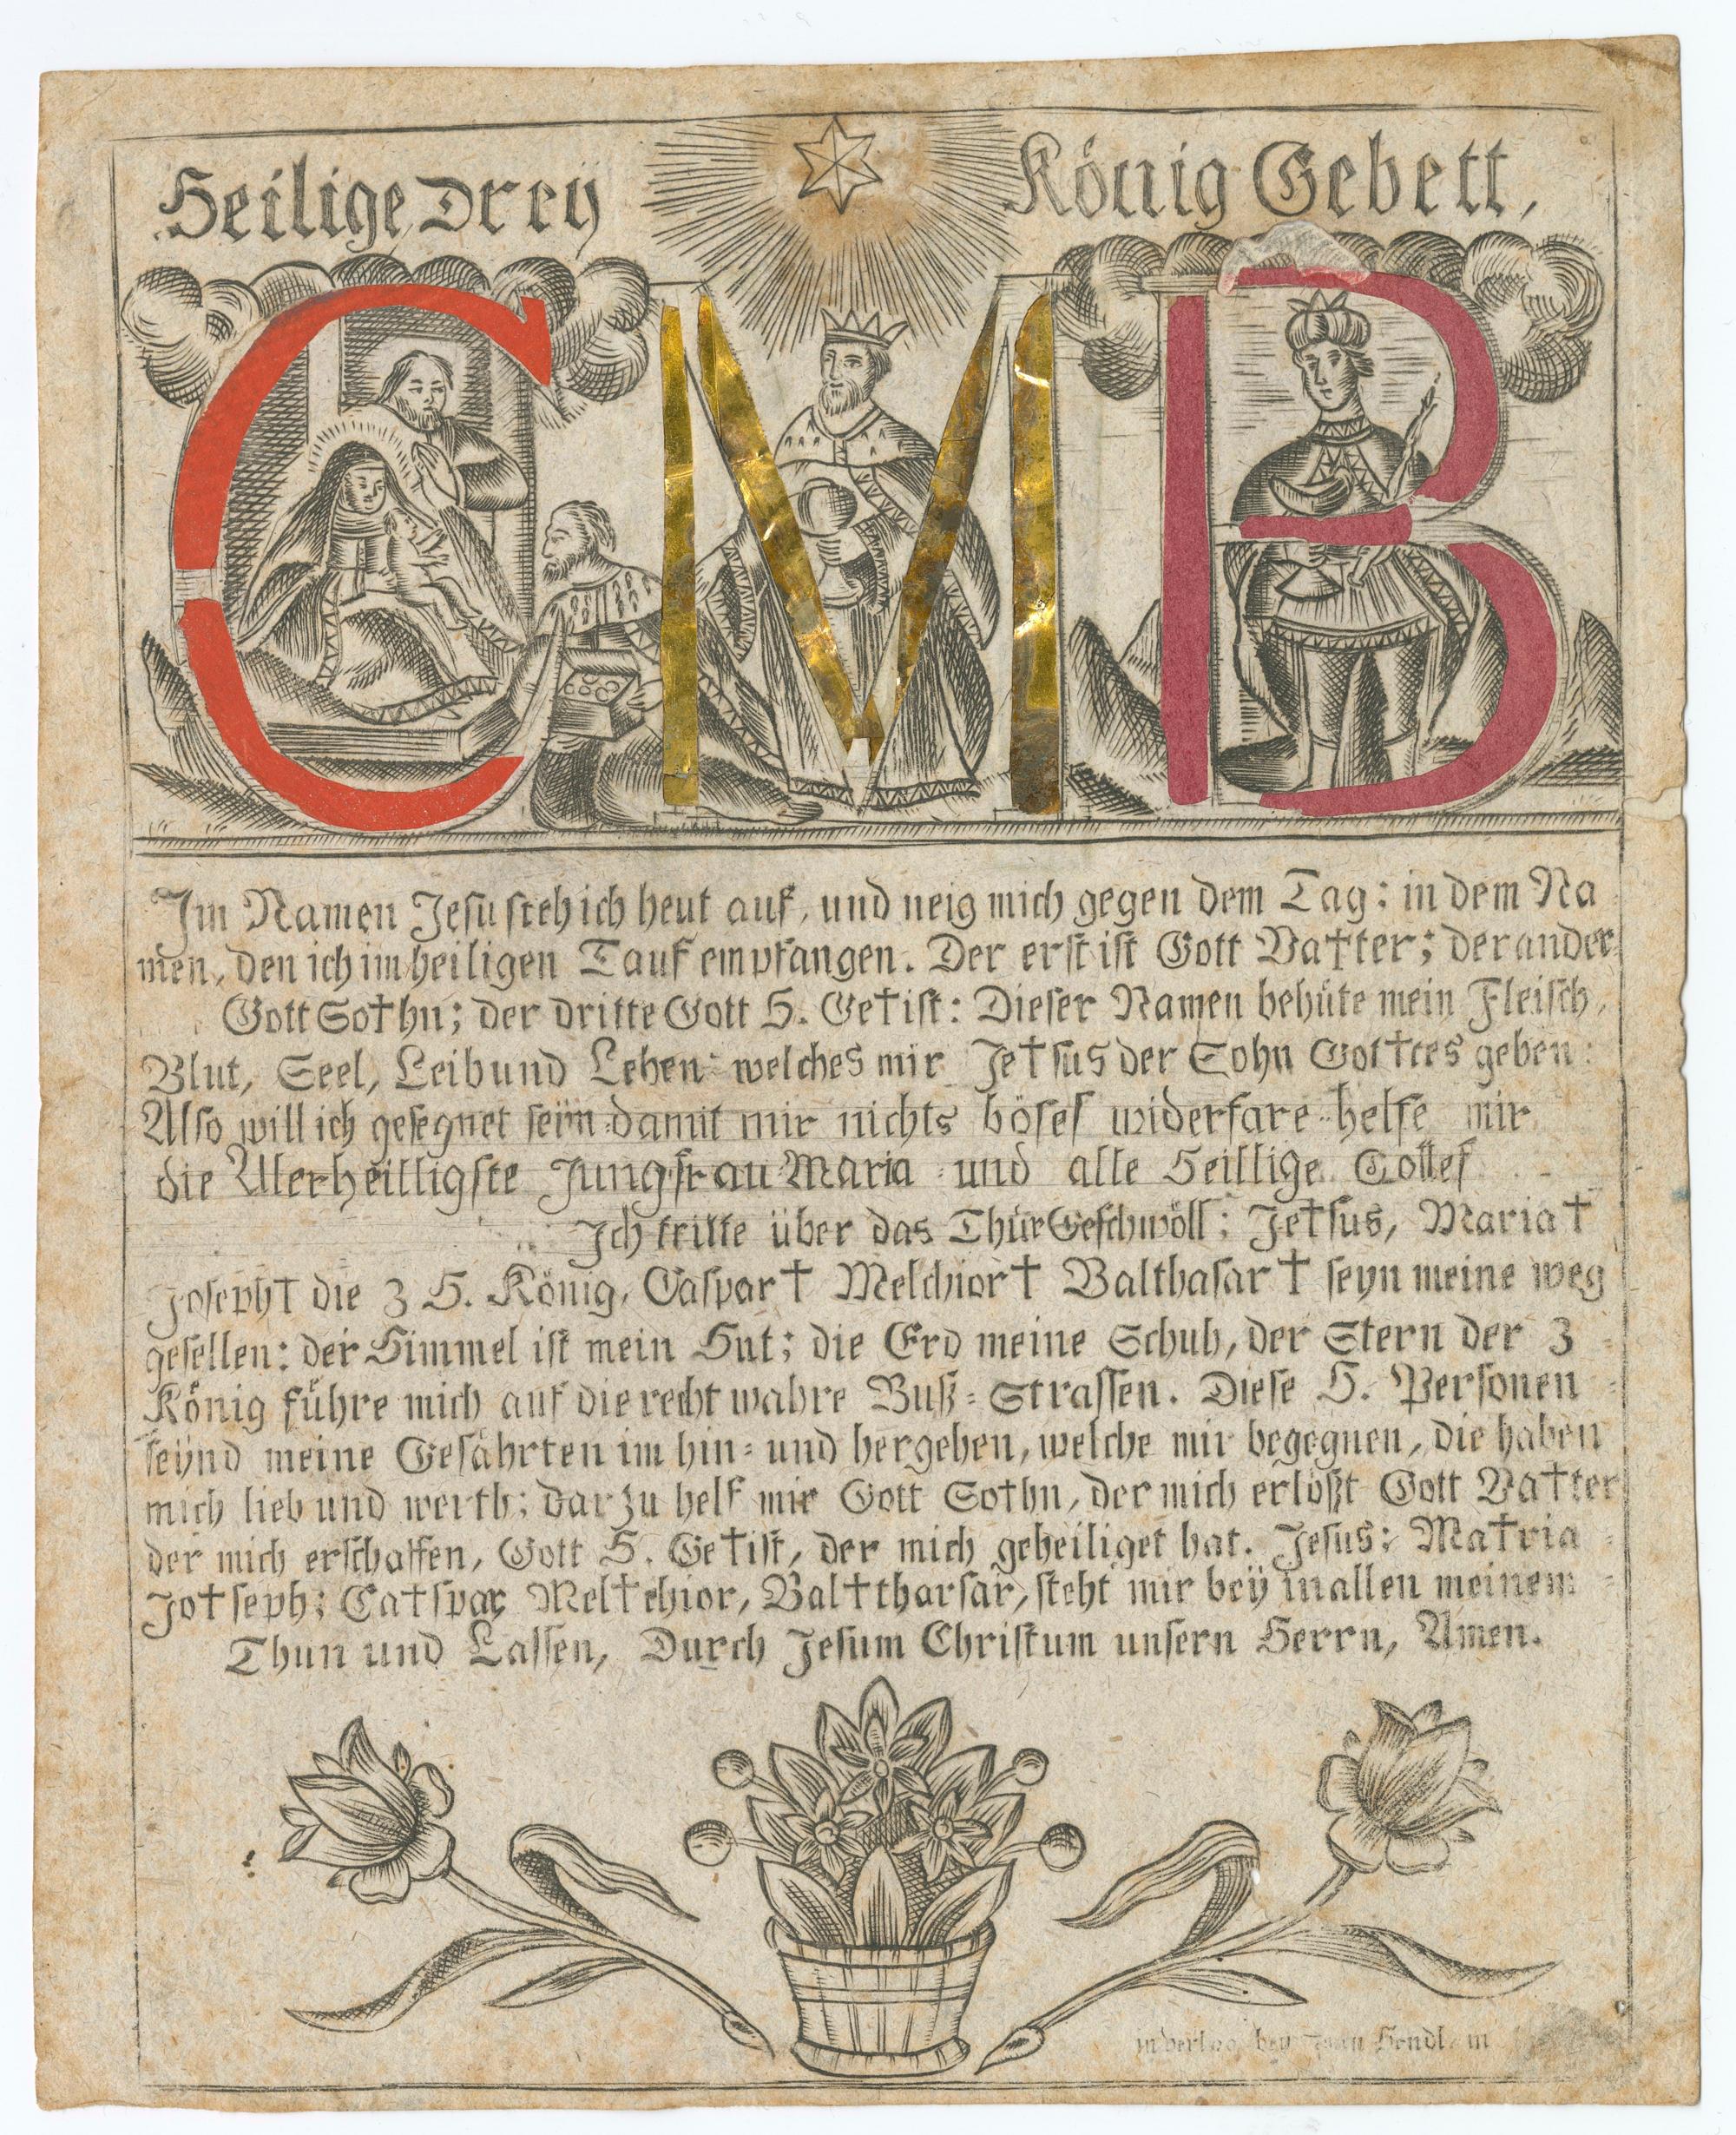 Heilige Dreÿ König Gebett,
C M B
Im Namen Jesu steh ich heut auf, und neig mich gegen dem Tag: in dem Na
men, den ich im heiligen Tauf empfangen. Der erst ist Gott Va†ter; der ander
Gott So†hn; der dritte Gott H. Ge†ist: Dieser Namen behüte mein Fleisch,
Blut, Seel, Leib und Leben: welches mir Je†sus der Sohn Got†tes geben:
Also will ich gesegnet seÿn damit mir nichts böses widerfare helfe mir
die Allerheilligste Jungfrau Maria und alle Heillige Gottes
Ich tritte über das Thür Geschwöll; Je†sus, Maria†
Joseph† die 3 H. König, Caspar† Melchior† Balthasar† seyn meine weg
gesellen: der Himmel ist mein Hut; die Erd meine Schuh, der Stern der 3
König führe mich auf die recht wahre Buß=Strassen. Diese H. Personen
seÿnd meine Gefährten im hin= und hergehen, welche mir begegnen, die haben
mich lieb und werth; dar zu helf mir Gott So†hn, der mich erlößt Gott Va†ter
der mich erschaffen, Gott H. Ge†ist, der mich geheiliget hat. Jesus: Ma†ria
Jo†seph; Ca†spar, Mel†chior, Bal†tharsar, steht mir beÿ in allen meinem
Thun und Lassen, Durch Jesum Christum unsern Herrn, Amen.
in verlag bey Hendl in